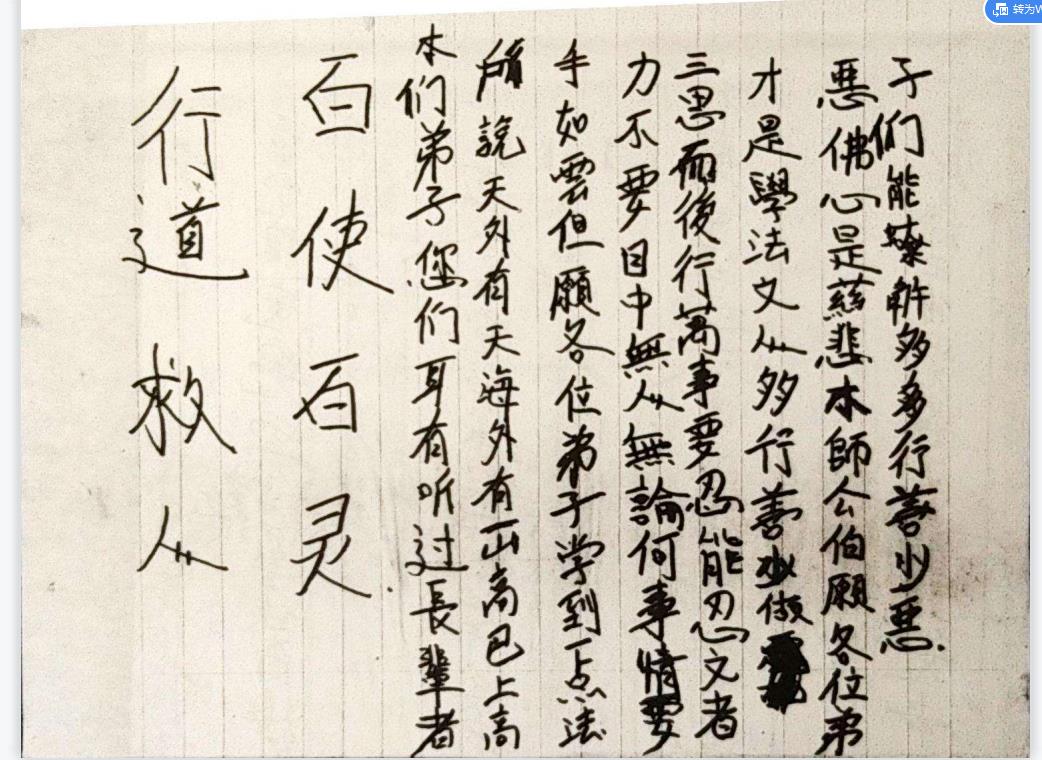 转为W
行道救人
百使百灵
本们弟子您们耳有听过長輩者
所說天外有天海外有山高巴上高
手如雲但願各位弟子学到一点法
力不要目中無人無論何事情要
三思而後行萬事要忍能忍文者
才是學法文人多行善少做
惡佛心是慈悲本師公伯願各位弟
子们能多多行善少惡.